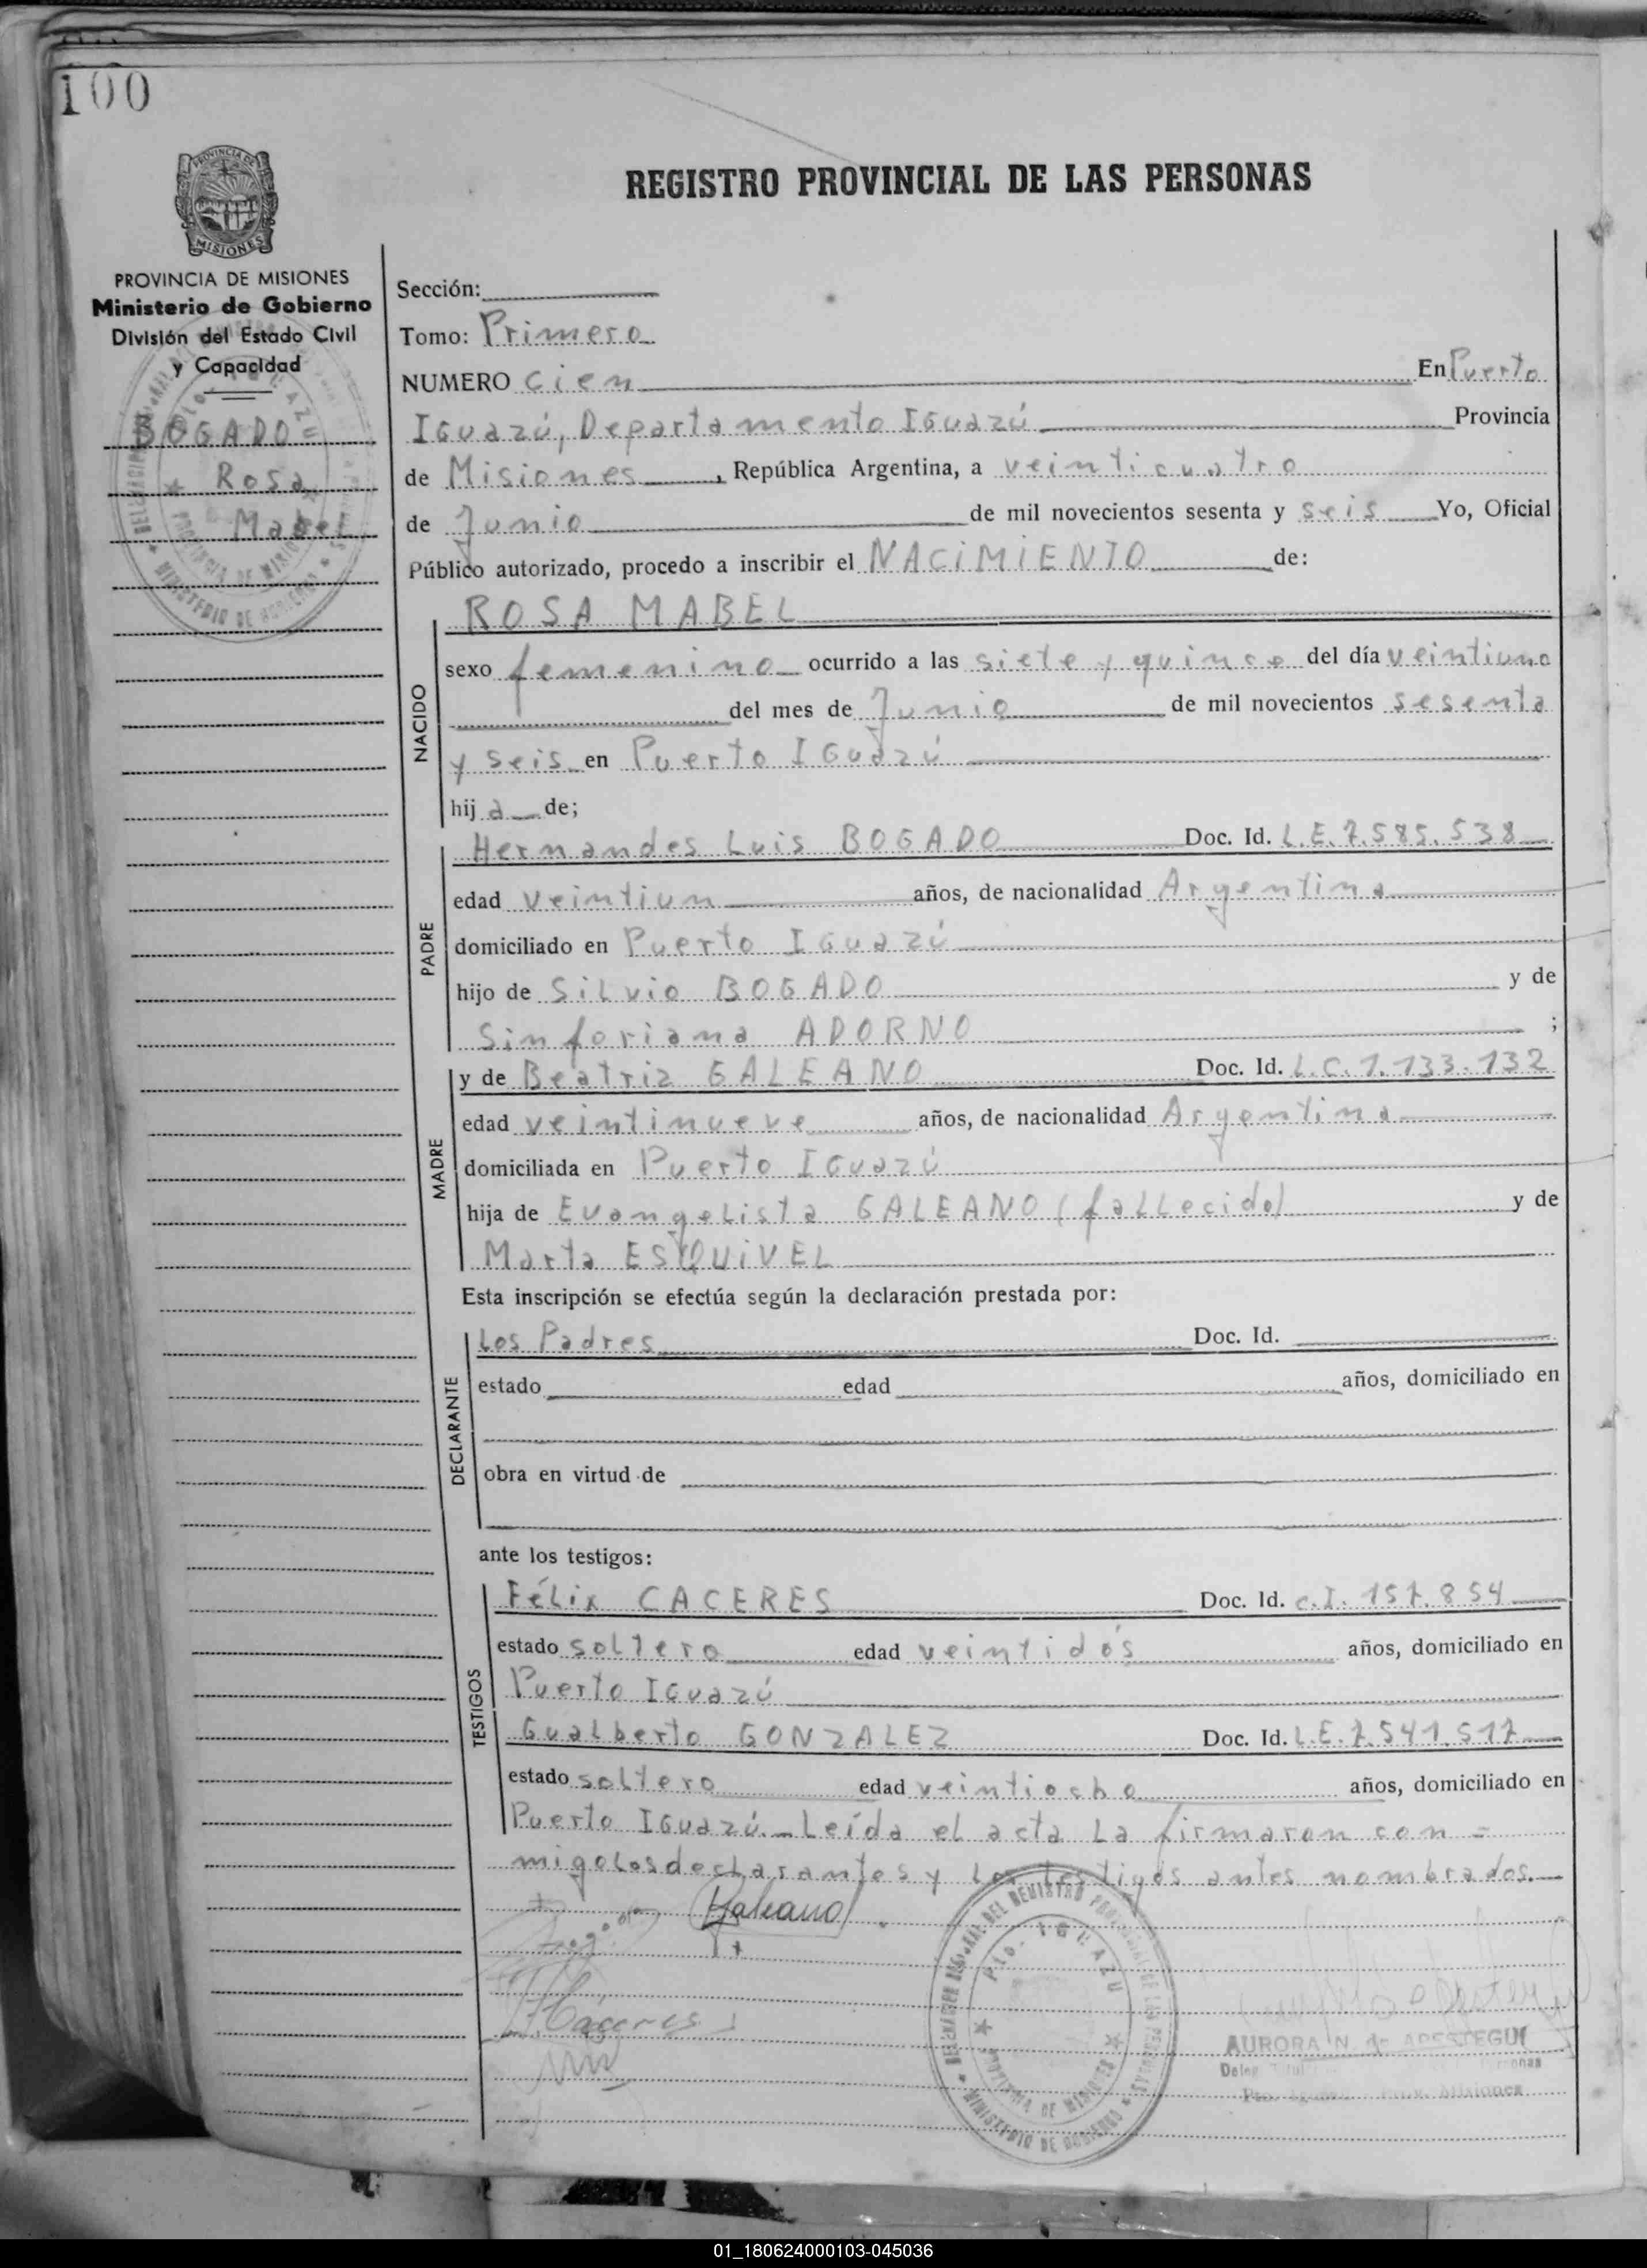 100
PROVINCIA DE
MISIONES
REGISTRO PROVINCIAL DE LAS PERSONAS
PROVINCIA DE MISIONES
Ministerio de Gobierno
División del Estado Civil
y Capacidad
BOGADO=
Rosa
Mabel
Sección:
Tomo: Primero
NUMERO Cien En Puerto
Iguazú, Departamento Iguazú Provincia
de Misiones, República Argentina, a veinticuatro
de Junio de mil novecientos sesenta y seis Yo, Oficial
Público autorizado, procedo a inscribir el NACIMIENTO de:
ROSA MABEL
NACIDO
sexo femenino ocurrido a las siete y quince del día veintiuno
del mes de Junio de mil novecientos sesenta
y seis en Puerto Iguazú
hij a de;
PADRE
Hernandes Luis BOGADO Doc. Id. L.E. 7.585.538
edad veintiun años, de nacionalidad Argentina
domiciliado en Puerto Iguazú
hijo de Silvio BOGADO y de
Sinforiana ADORNO ;
MADRE
y de Beatriz GALEANO Doc. Id. L.C. 1.133.132
edad veintinueve años, de nacionalidad Argentina
domiciliada en Puerto Iguazú
hija de Evangelista GALEANO (fallecido) y de
Marta ESQUIVEL
Esta inscripción se efectúa según la declaración prestada por:
DECLARANTE
Los Padres Doc. Id.
estado edad años, domiciliado en
obra en virtud de
ante los testigos:
TESTIGOS
Félix CACERES Doc. Id. C.I. 157.854
estado soltero edad veintidós años, domiciliado en
Puerto Iguazú
Gualberto GONZALEZ Doc. Id. L.E. 7.541.517
estado soltero edad veintiocho años, domiciliado en
Puerto Iguazú. Leída el acta La firmaron con =
migo los declarantes y los testigos antes nombrados.
Galeano
Cáceres
PTO. IGUAZU
PROVINCIA DE MISIONES
MINISTERIO DE GOBIERNO
AURORA N. de APESTEGUI
01_180624000103-045036